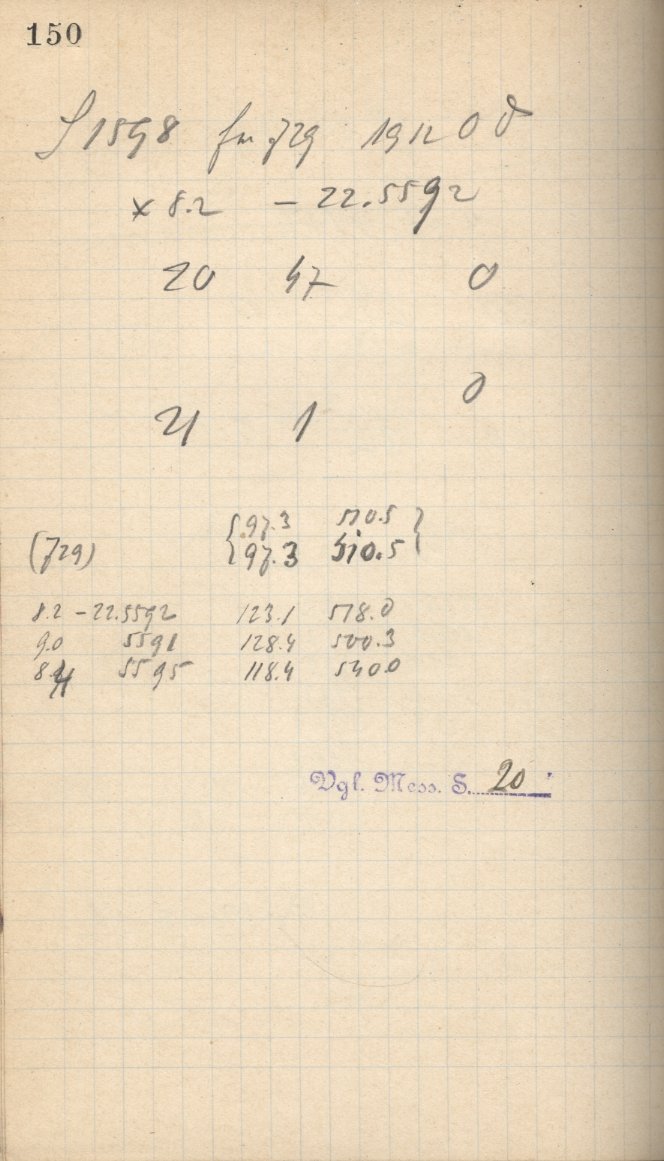 150
1598 729 1912 O
× 8.2 - 22.5592
20 47 0
0
21 1
{97.3 510.5}
(729) {97.3 510.5}
8.2 - 22.5592 123.1 518.0
9.0 5591 128.4 500.3
5595 118.4 540.0
Vgl. Mess. S. 20